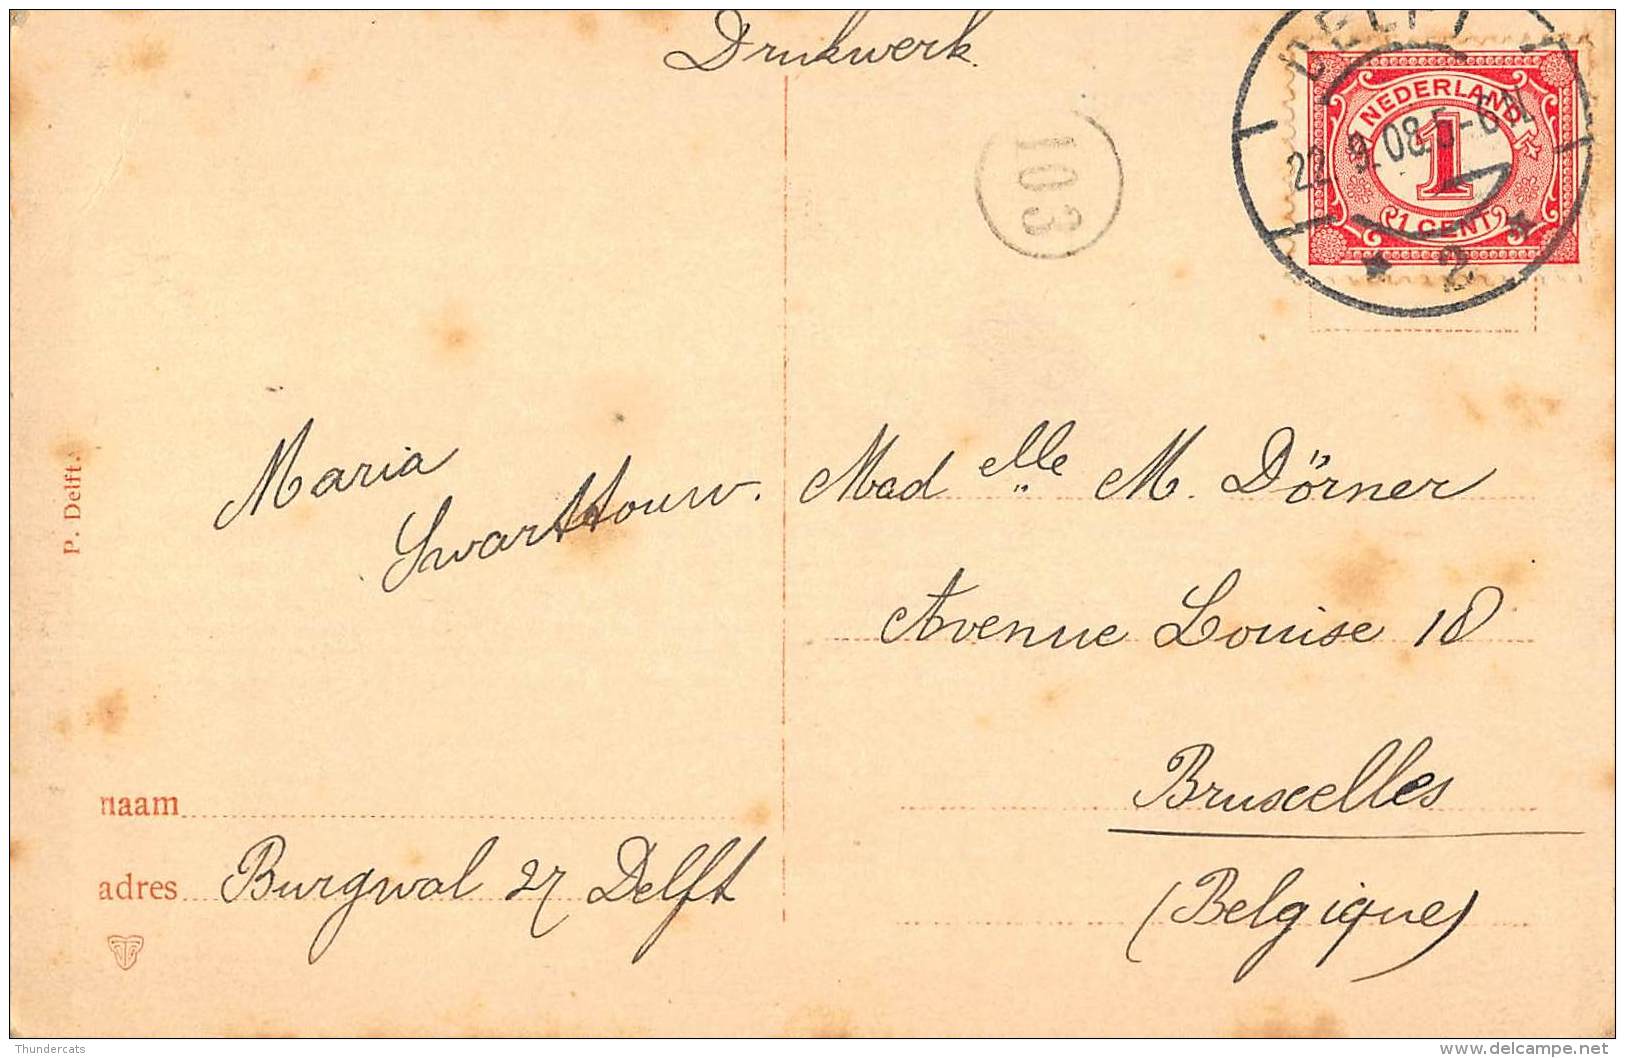 Drukwerk.
DELFT
22.9.08.5-6N
2
NEDERLAND
1
1 CENT
103
P. Delft.
Maria
Swarttouw.
Mad elle M. Dörner
Avenue Louise 18
Bruxelles
(Belgique)
naam
adres Burgwal 27 Delft
Thundercats
delcampe.net